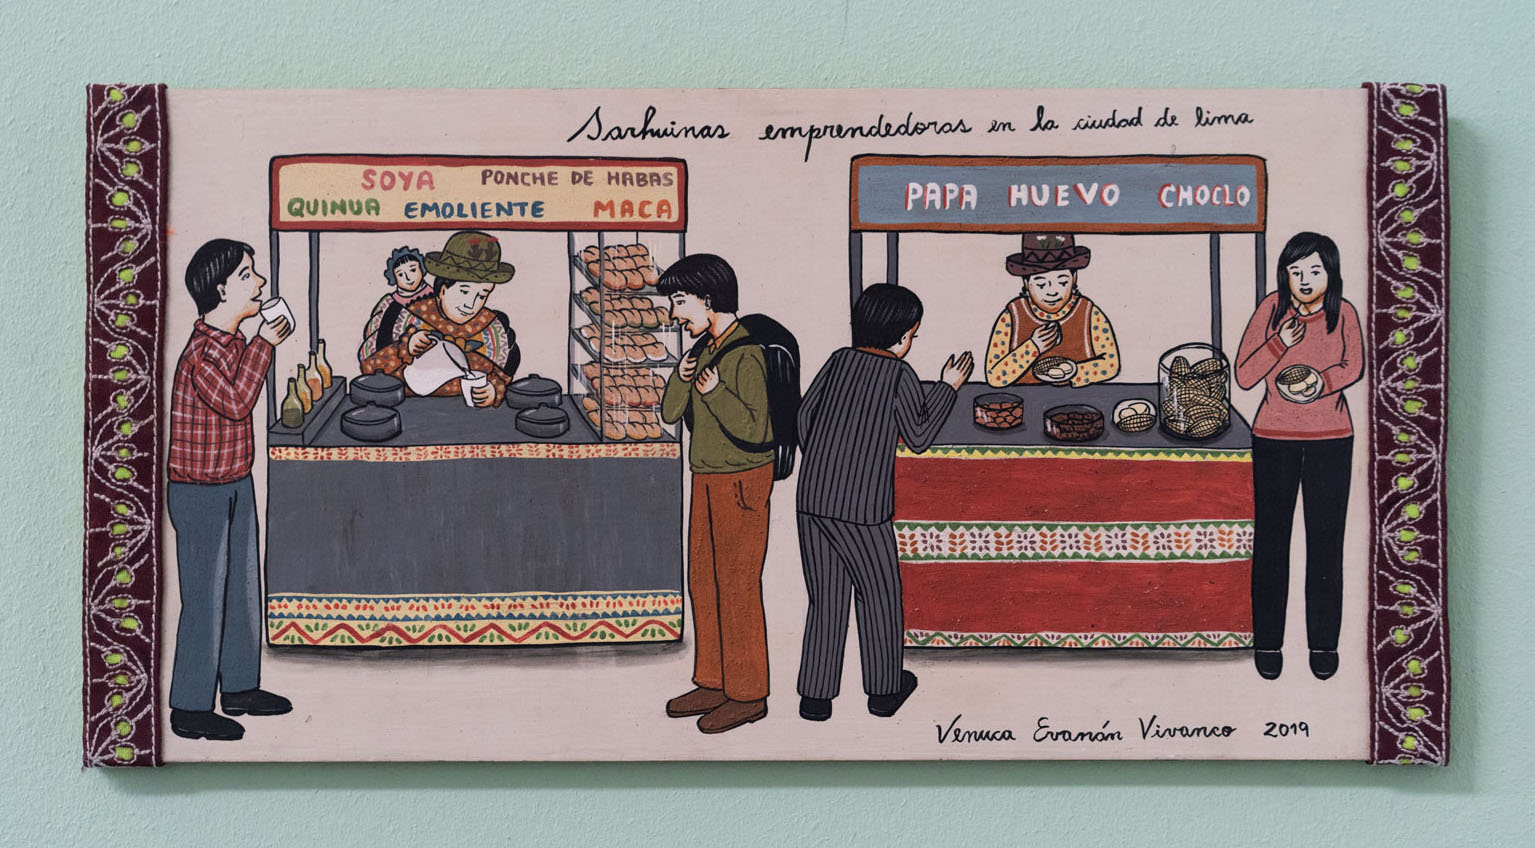 Sarhuinas emprendedoras en la ciudad de lima
SOYA PONCHE DE HABAS
QUINUA EMOLIENTE MACA
PAPA HUEVO CHOCLO
Venuca Evanán Vivanco 2019